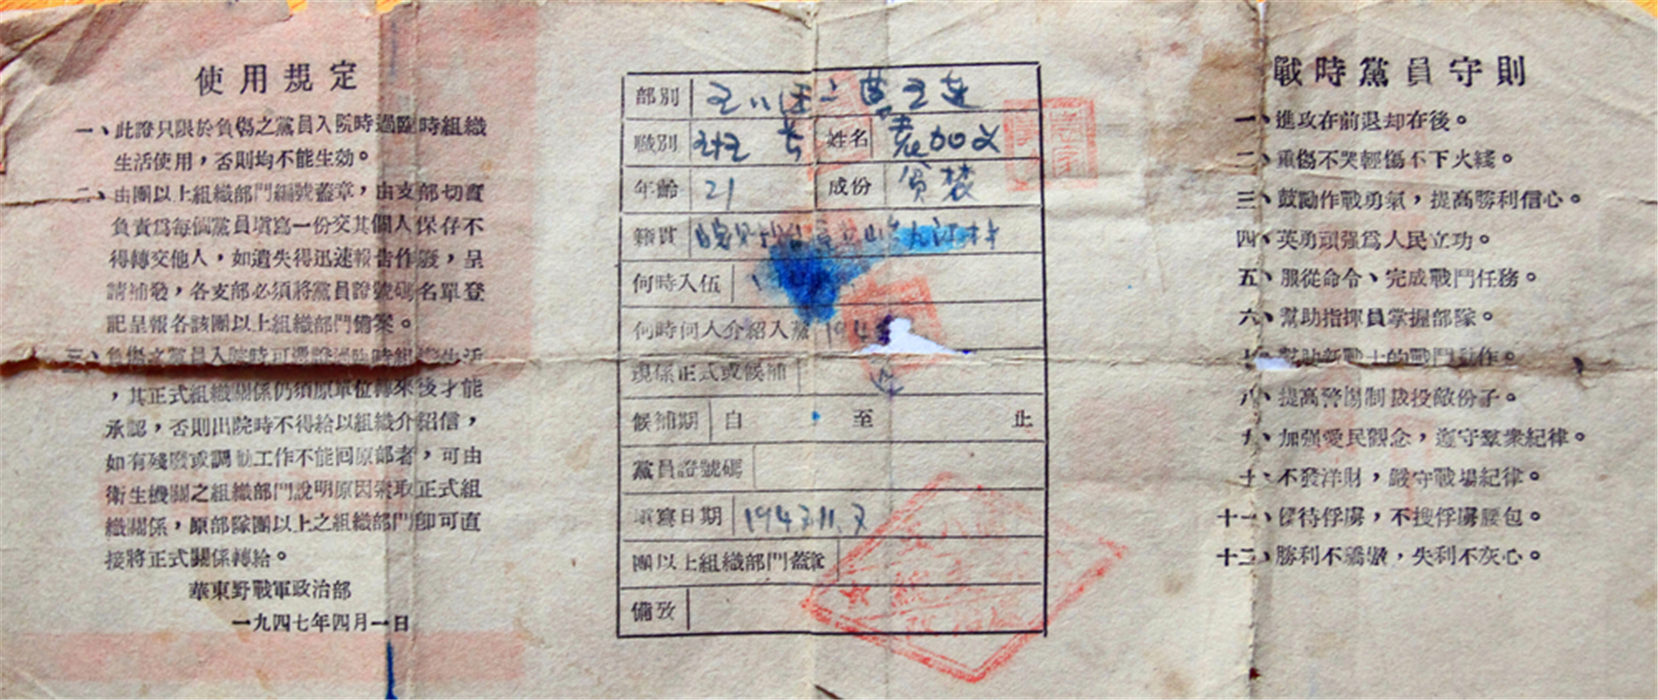 使用規定
一、此證只限於負傷之黨員入院時過臨時組織
生活使用，否則均不能生効。
二、由團以上組織部門編號蓋章，由支部切實
負責爲每個黨員填寫一份交其個人保存不
得轉交他人，如遺失得迅速報告作廢，呈
請補發，各支部必須將黨員證號碼名單登
記呈報各該團以上組織部門備案。
三、負傷之黨員入院時可憑證過臨時組織生活
，其正式組織關係仍須原單位轉來後才能
承認，否則出院時不得給以組織介紹信，
如有殘廢或調動工作不能回原部者，可由
衛生機關之組織部門說明原因索取正式組
織關係，原部隊團以上之組織部門卽可直
接將正式關係轉給。
華東野戰軍政治部
一九四七年四月一日
部別
職別 姓名 袁加文
年齡 21 成份 貧農
籍貫
何時入伍
何時何人介紹入黨 194
現係正式或候補
候補期 自 至 止
黨員證號碼
填寫日期 1947.11.7
團以上組織部門蓋章
備攷
戰時黨員守則
一、進攻在前退却在後。
二、重傷不哭輕傷不下火綫。
三、鼓勵作戰勇氣，提高勝利信心。
四、英勇頑强爲人民立功。
五、服從命令、完成戰鬥任務。
六、幫助指揮員掌握部隊。
七、幫助新戰士的戰鬥動作。
八、提高警惕制裁投敵份子。
九、加强愛民觀念，遵守羣衆紀律。
十、不發洋財，嚴守戰場紀律。
十一、優待俘虜，不搜俘虜腰包。
十二、勝利不驕傲，失利不灰心。